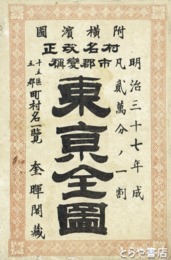 附横濱圖
村名改正
市郡變稱
明治三十七年成
凡貳萬分ノ一割
東京全圖
十五區
五郡
町村名一覧
奎暉閣藏
とらや書店